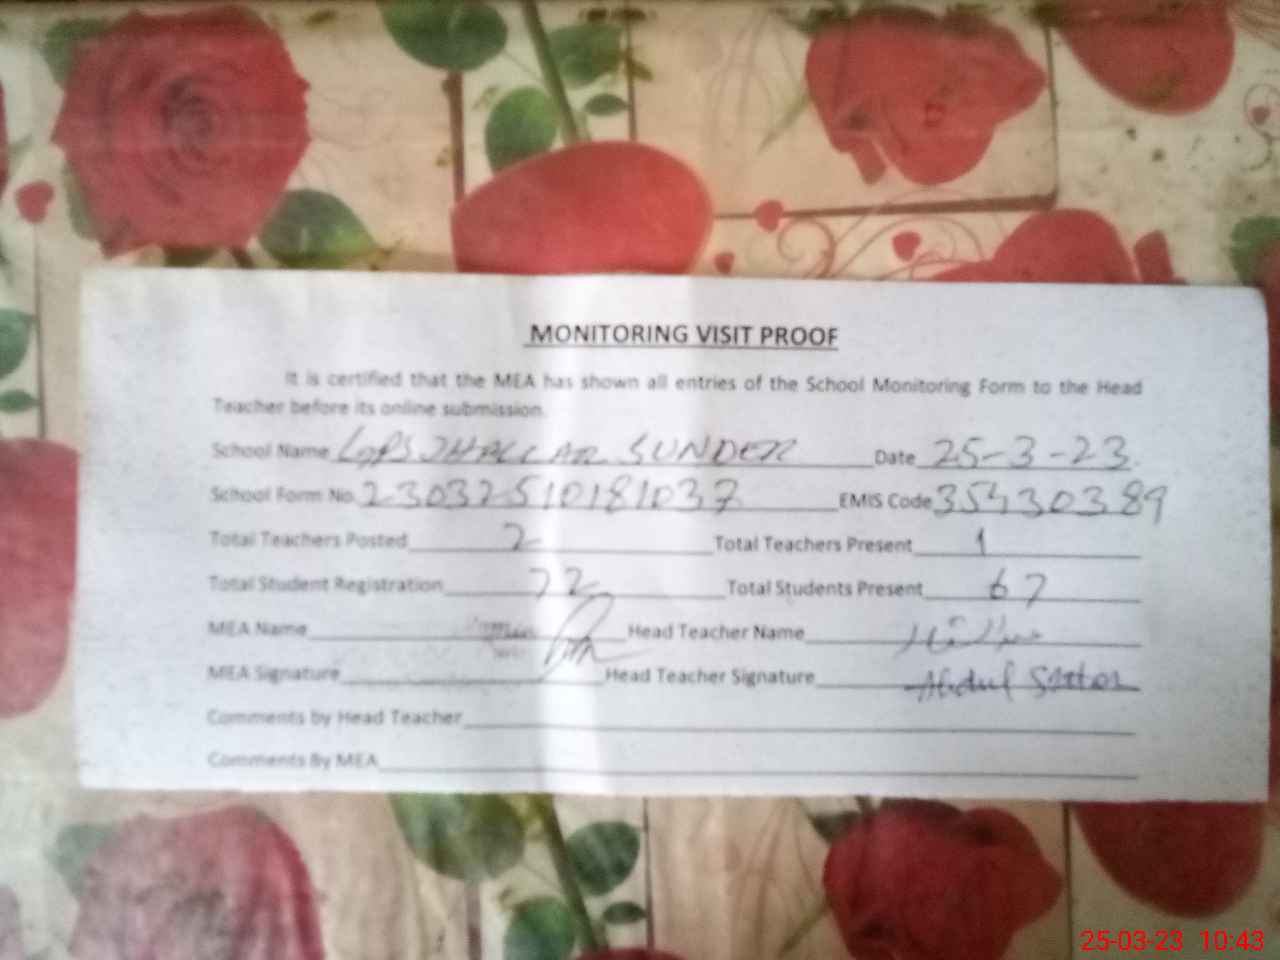 MONITORING VISIT PROOF
It is certified that the MEA has shown all entries of the School Monitoring Form to the Head
Teacher before its online submission.
School Name GPS JHALLAR SUNDER Date 25-3-23.
School Form No. 23032510181037 EMIS Code 35430389
Total Teachers Posted 2 Total Teachers Present 1
Total Student Registration 72 Total Students Present 67
MEA Name Head Teacher Name عبدالستار
MEA Signature Head Teacher Signature Abdul Sattar
Comments by Head Teacher
Comments By MEA
25-03-23 10:43